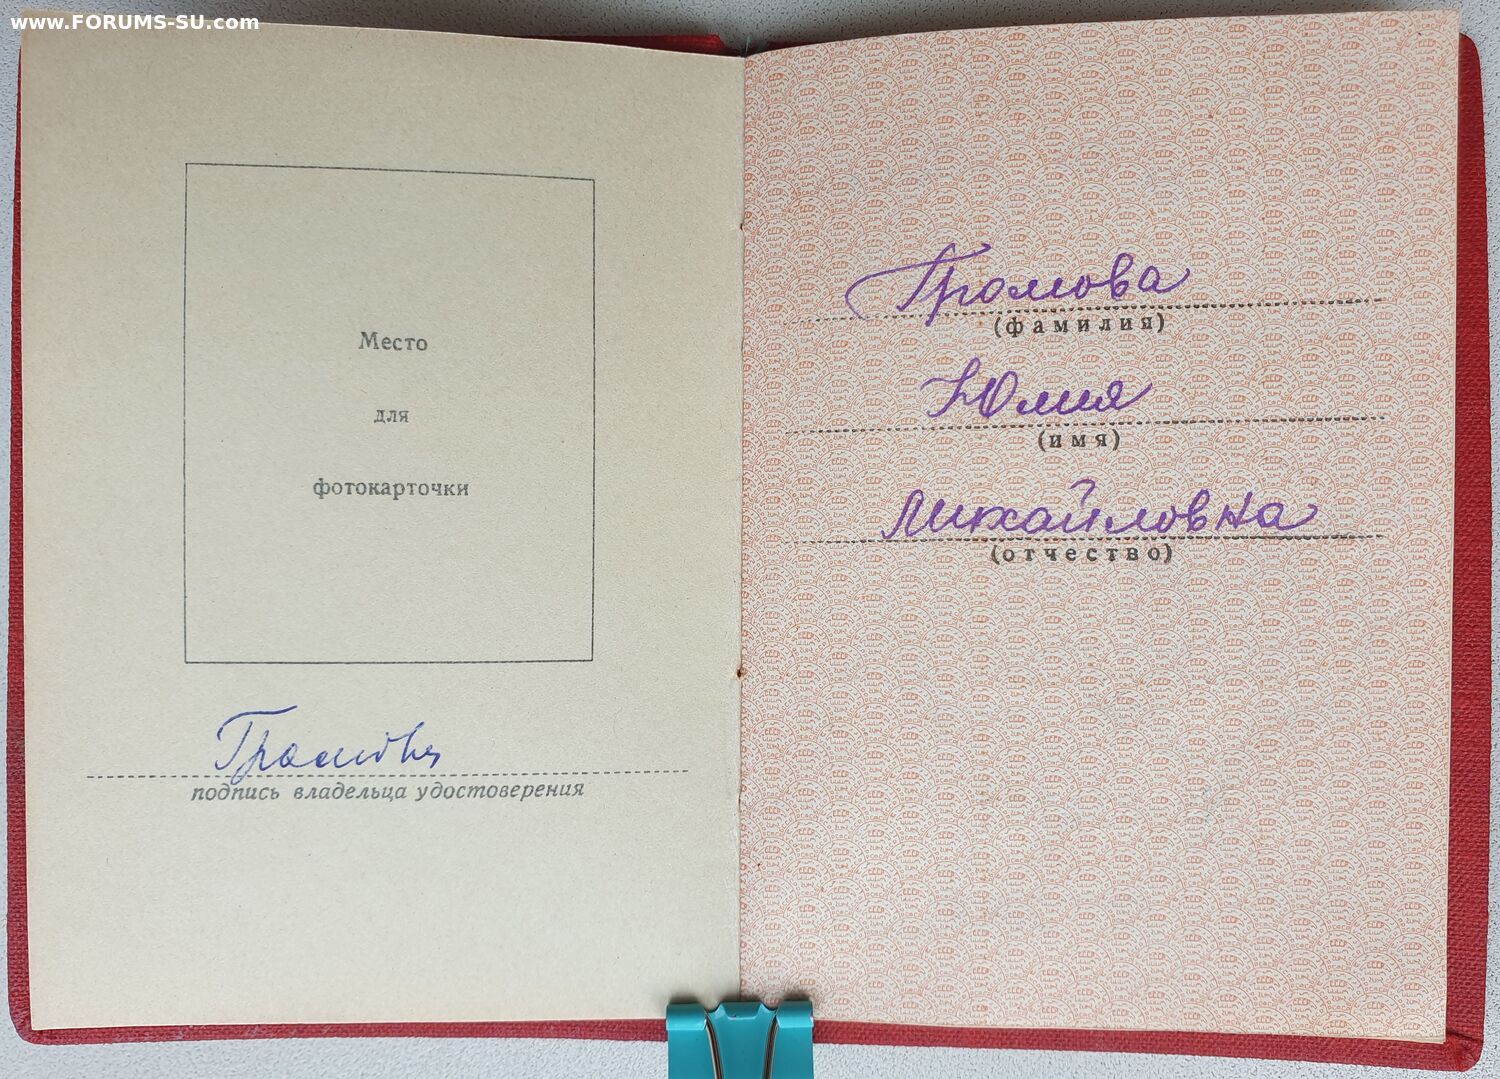 www.FORUMS-SU.com
Место
для
фотокарточки
Громова
подпись владельца удостоверения
Громова
(фамилия)
Юлия
(имя)
Михайловна
(отчество)